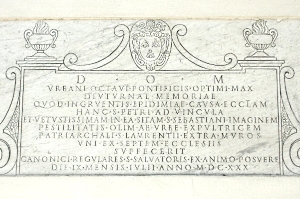 D O M
VRBANI OCTAVI PONTIFICIS OPTIMI MAX
DIVTVRNAE MEMORIAE
QVOD INGRVENTIS EPIDIMIAE CAVSA ECCLAM
HANC S PETRI AD VINCVLA
ET VETVSTISSIMAM IN EA SITAM S SEBASTIANI IMAGINEM
PESTILITATIS OLIM AB VRBE EXPVLTRICEM
PATRIARCHALI S LAVRENTII EXTRA MVROS
VNI EX SEPTEM ECCLESIIS
SVFFECERIT
CANONICI REGVLARES S SALVATORIS EX ANIMO POSVERE
DIE IX MENSIS IVLII ANNO M DC XXX